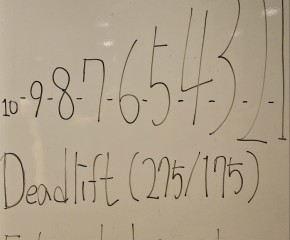 10-9-8-7-6-5-4-3-2-1
Deadlift (275/175)